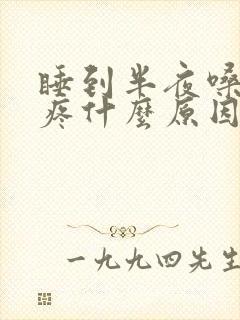 睡到半夜嗓
疼什麼原因
一九九四先生